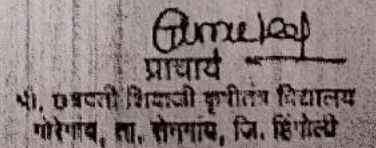 प्राचार्य
श्री. छत्रपती शिवाजी कृषीतंत्र विद्यालय
गोरेगाव, ता. सेनगाव, जि. हिंगोली